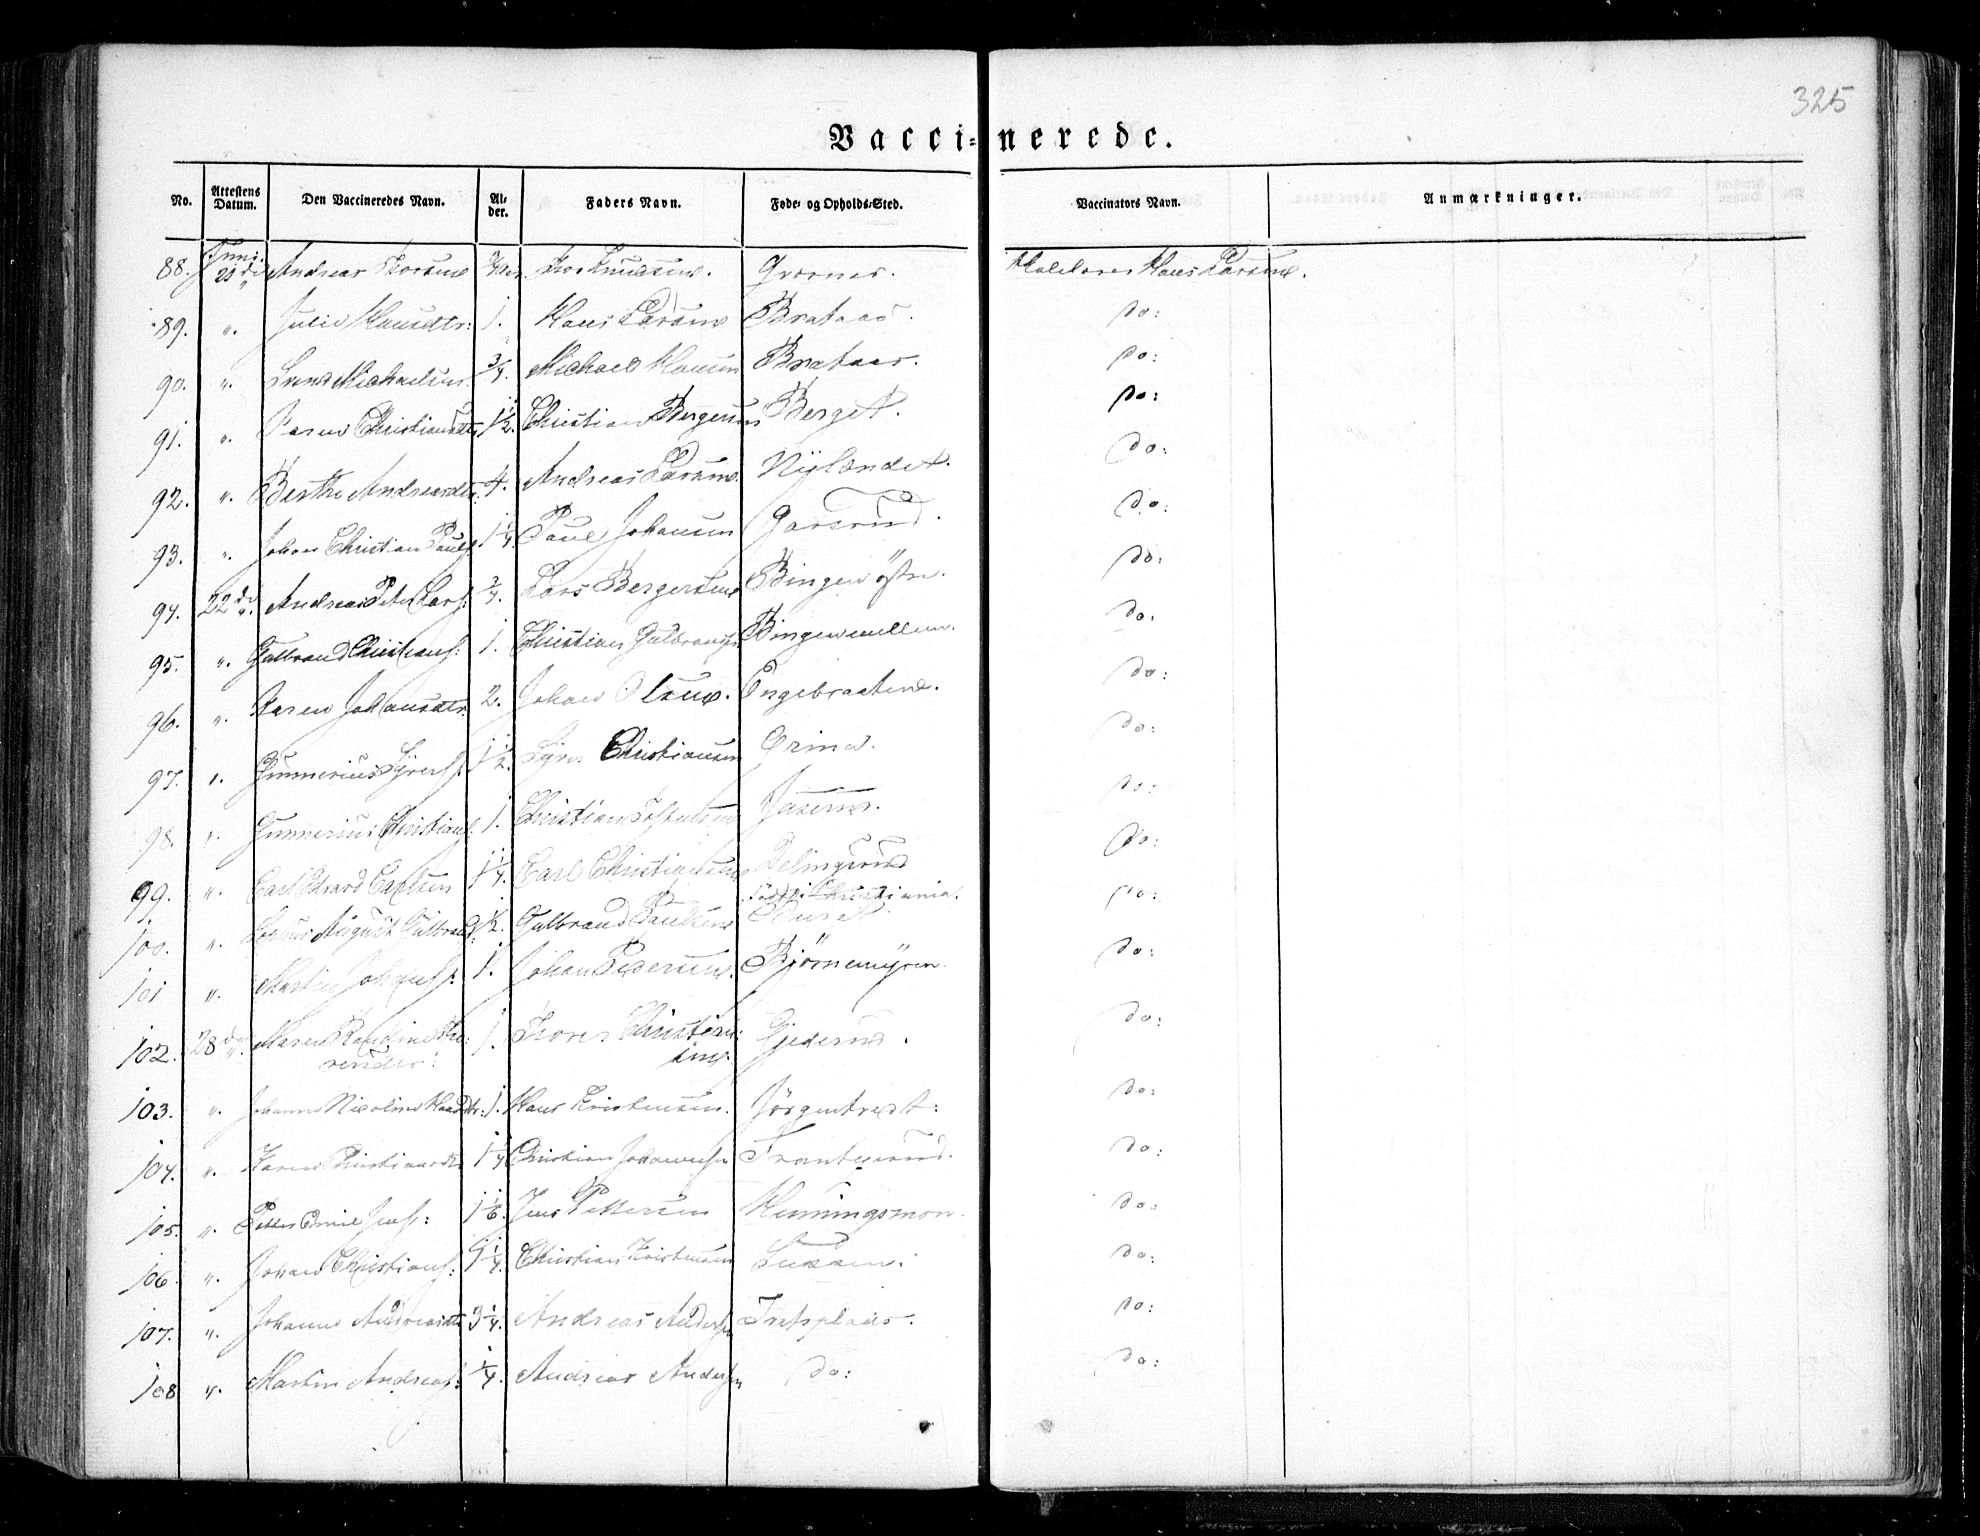 325
Vaccinerede.
No. Attestens Datum. Den Vaccineredes Navn. Alder. Faders Navn. Føde- og Opholds-Sted. Vaccinators Navn. Anmærkninger.
88. Juni 21de Andreas Gvernes. Hans Larsen.
89. " Julie Hansdtr: 1. Hans Larsen Brataas. do:
90. " Michaelsen 3/4. Michael Hansen Brataas. do:
91. " Karen Christiansdtr 1 1/2. Christian Bergersen Berget. do:
92. " Berthe Andreasdtr. 4. Andreas Larsen Nylændet. do:
93. " Johan Christian Pauls. 1 1/4. Paul Johansen Garsrud. do:
94. 22de Andreas Peter Lars: 3/4. Lars Bergersen Bingen østre. do:
95. " Gulbrand Christians: 1. Christian Gulbrands: Bingen mellem. do.
96. " Karen Johansdtr. 2. Johan Olsen. Engebraatene. do:
97. " Gunnerius 1 1/2. Christiansen do:
98. " Gunnerius Christians: 1. Christian do:
99. " Carl Edvard Carlsen 1 1/4 Carl Christiansen do:
født i Christiania.
100. " August Gulbrands: 1/2. Gulbrand Paulsen do:
101 " Martin Johans: 1. Johan Pedersen. Bjørnemyren. do:
102. 28de Maren 1. Gjedsrud. do:
103. " Johanne Nicoline Hansdtr: 1. Hans Kristensen. Jörgentrædt: do:
104. " Karen Christiansdtr 1 1/4 Christian Johannessen Frantserud. do:
105. " Petter Emil Jens: 1 1/6. Jens Pettersen Henningsmoen. do:
106. " Johan Christians: 5 1/4. Christian Kristensen do:
107. " Johanne Andreasdtr 3 1/4. Andreas Anders: do:
108 " Martin Andreas: 1/4. Andreas Anders: do: do: